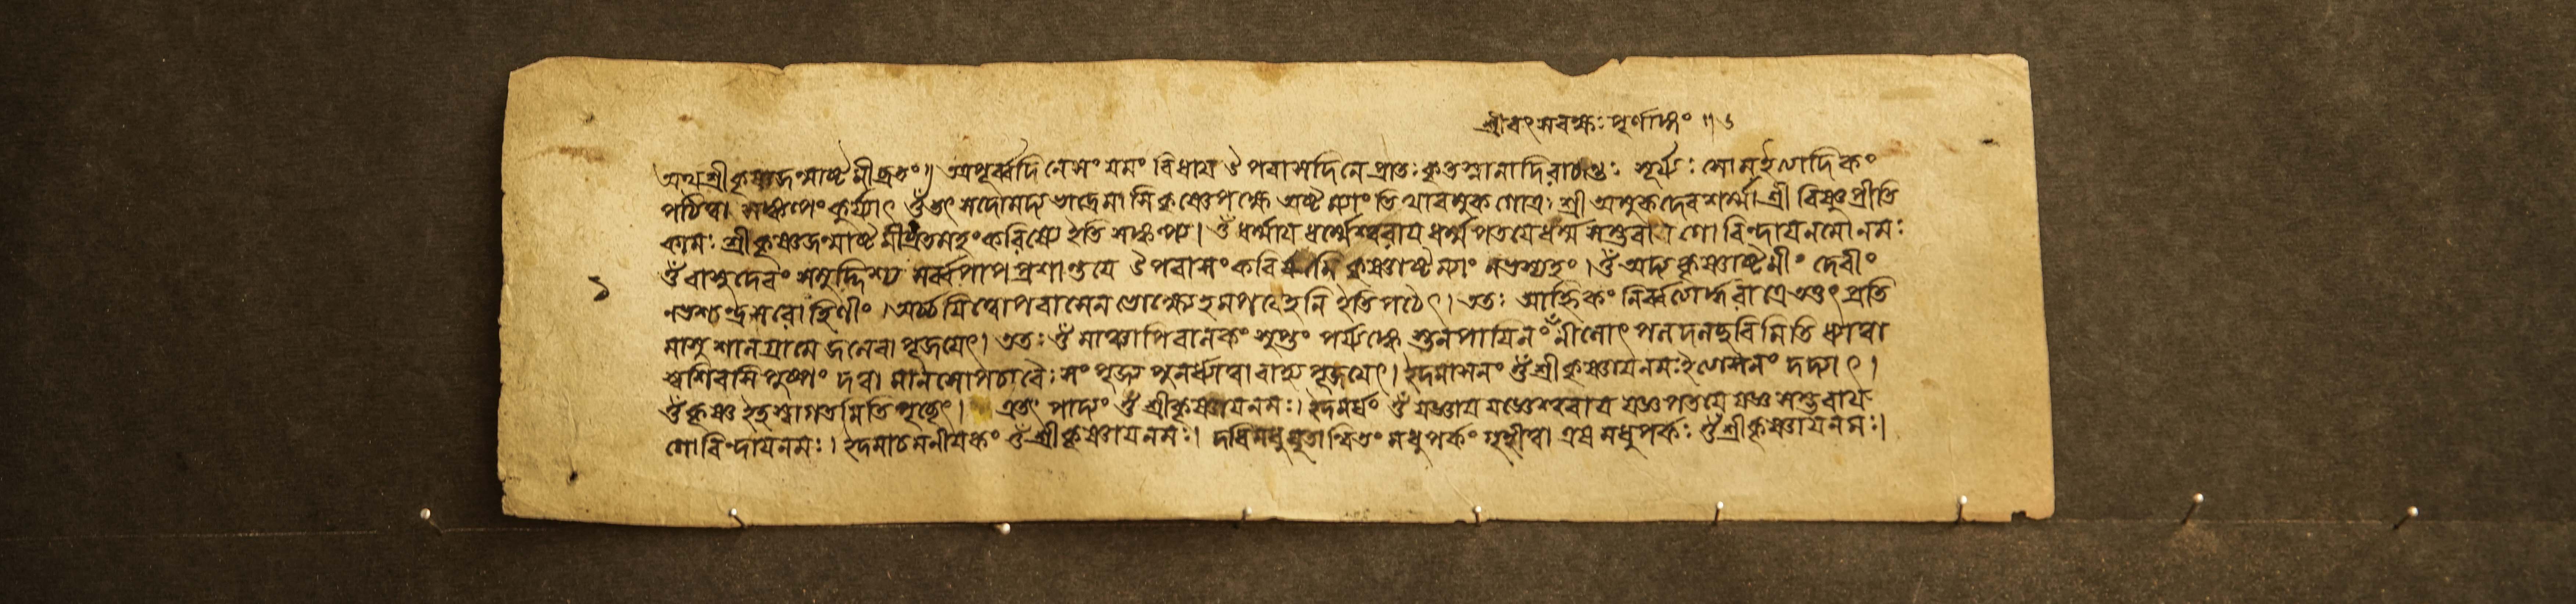 শ্রীবৎসবক্ষঃ পূর্ণাঙ্গং ॥ ৬
অথ শ্রীকৃষ্ণজন্মাষ্টমীব্রতং॥ অপূর্ব্বদিনে সংযমং বিধায় উপবাসদিনে প্রাতঃ কৃতস্নানাদিরাচান্তঃ সূর্য্যঃ সোম ইত্যাদিকং
পঠিত্বা সঙ্কল্পং কুর্য্যাৎ ওঁ তৎসদোমদ্য ভাদ্রেমাসি কৃষ্ণেপক্ষে অষ্টম্যাং তিথাবমুকগোত্রঃ শ্রীঅমুকদেবশর্ম্মা শ্রীবিষ্ণুপ্রীতি
কামঃ শ্রীকৃষ্ণজন্মাষ্টমীব্রতমহং করিষ্যে ইতি সঙ্কল্প্য। ওঁ ধর্ম্মায় ধর্ম্মেশ্বরায় ধর্ম্মপতয়ে ধর্ম্মসম্ভবায় গোবিন্দায় নমোনমঃ
১ ওঁ বাসুদেবং সমুদ্দিশ্য সর্ব্বপাপপ্রশান্তয়ে উপবাসং করিষ্যামি কৃষ্ণাষ্টম্যাং নভস্যহং। ওঁ অদ্য কৃষ্ণাষ্টমীং দেবীং
নভশ্চন্দ্রসরোহিণীং। অর্চ্চয়িত্বোপবাসেন ভোক্ষ্যেহমপরেহনি ইতি পঠেৎ। ততঃ আহ্নিকং নির্ব্বর্ত্যার্দ্ধরাত্রে তত্তৎ প্রতি
মাসু শালগ্রামে জলেবা পূজয়েৎ। ততঃ ওঁ মাঞ্চাপি বালকং সুপ্তং পর্য্যঙ্কে স্তনপায়িনং নীলোৎপলদলচ্ছবিমিতি ধ্যাত্বা
স্বশিরসি পুষ্পং দত্বা মানসোপচারৈঃ সংপূজ্য পুনর্ধ্যাত্বাবাহ্য পূজয়েৎ। ইদমাসনং ওঁ শ্রীকৃষ্ণায় নমঃ ইত্যাসনং দদ্যাৎ।
ওঁ কৃষ্ণ ইহ সুস্বাগতমিতি পৃচ্ছেৎ। এতৎ পাদ্যং ওঁ শ্রীকৃষ্ণায় নমঃ। ইদমর্ঘং ওঁ যজ্ঞায় যজ্ঞেশ্বরায় যজ্ঞপতয়ে যজ্ঞসম্ভবায়
গোবিন্দায় নমঃ। ইদমাচমনীয়কং ওঁ শ্রীকৃষ্ণায় নমঃ। দধিমধুঘৃতান্বিতং মধুপর্কং গৃহীত্বা এষ মধুপর্কঃ ওঁ শ্রীকৃষ্ণায় নমঃ।